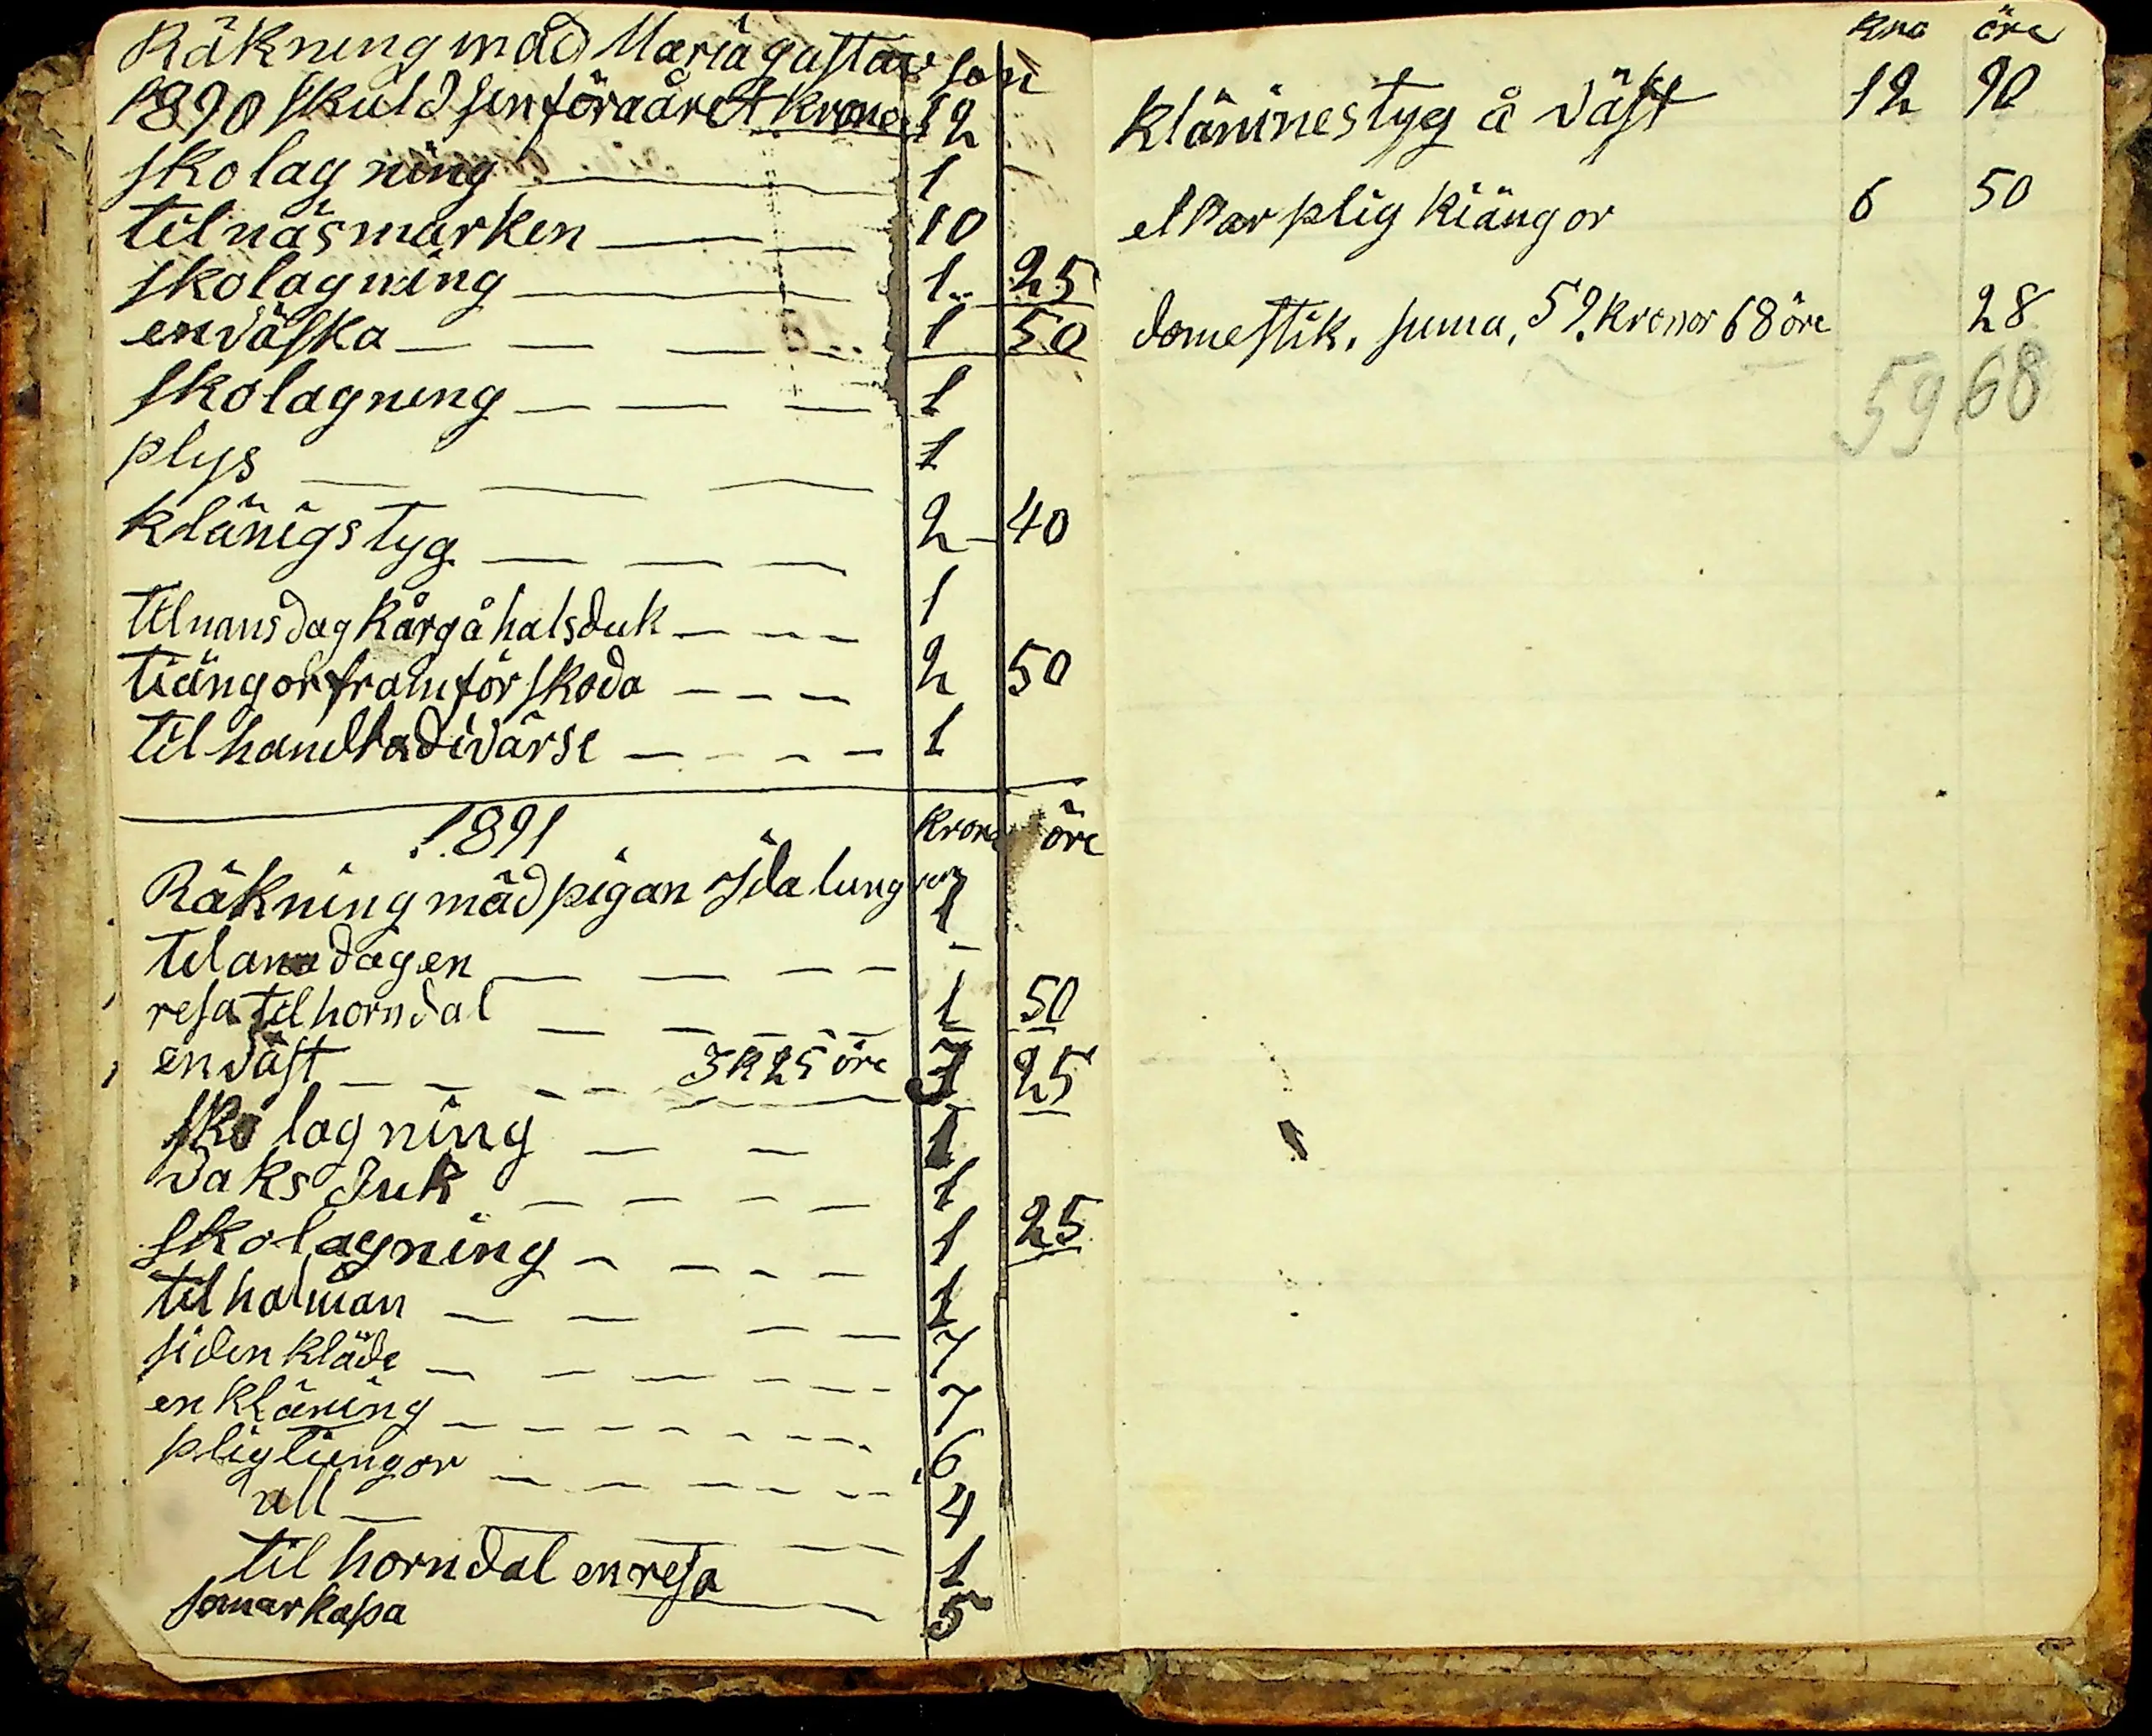 Räkning mäd Maria gustavson
1890 skuld sen föra året kronor 12
skolagning 1
til näsmarken 10
skolagning 1 25
en väska 1 50
skolagning 1
plys 1
klänigstyg 2 40
til nansdag kårg å halsduk 1
tiängor framförskoda 2 50
til handla divärse 1
1891 kronor öre
Räkning mäd pigan Ida lunggren 1
til ana dagen
resa til horndal 1 50
en väst 3 k 25 öre 3 25
sko lagning 1
vaks duk 1
skolagning 1 25
til halman 1
siden kläde 7
en kläning 7
pligtiengor 6
ull 4
til horndal en resa 1
somarkapa 5
kro öre
kläninestyg å väst 12 90
et par plig kiängor 6 50
domestik. suma, 59. kronor 68 öre 28
59 68